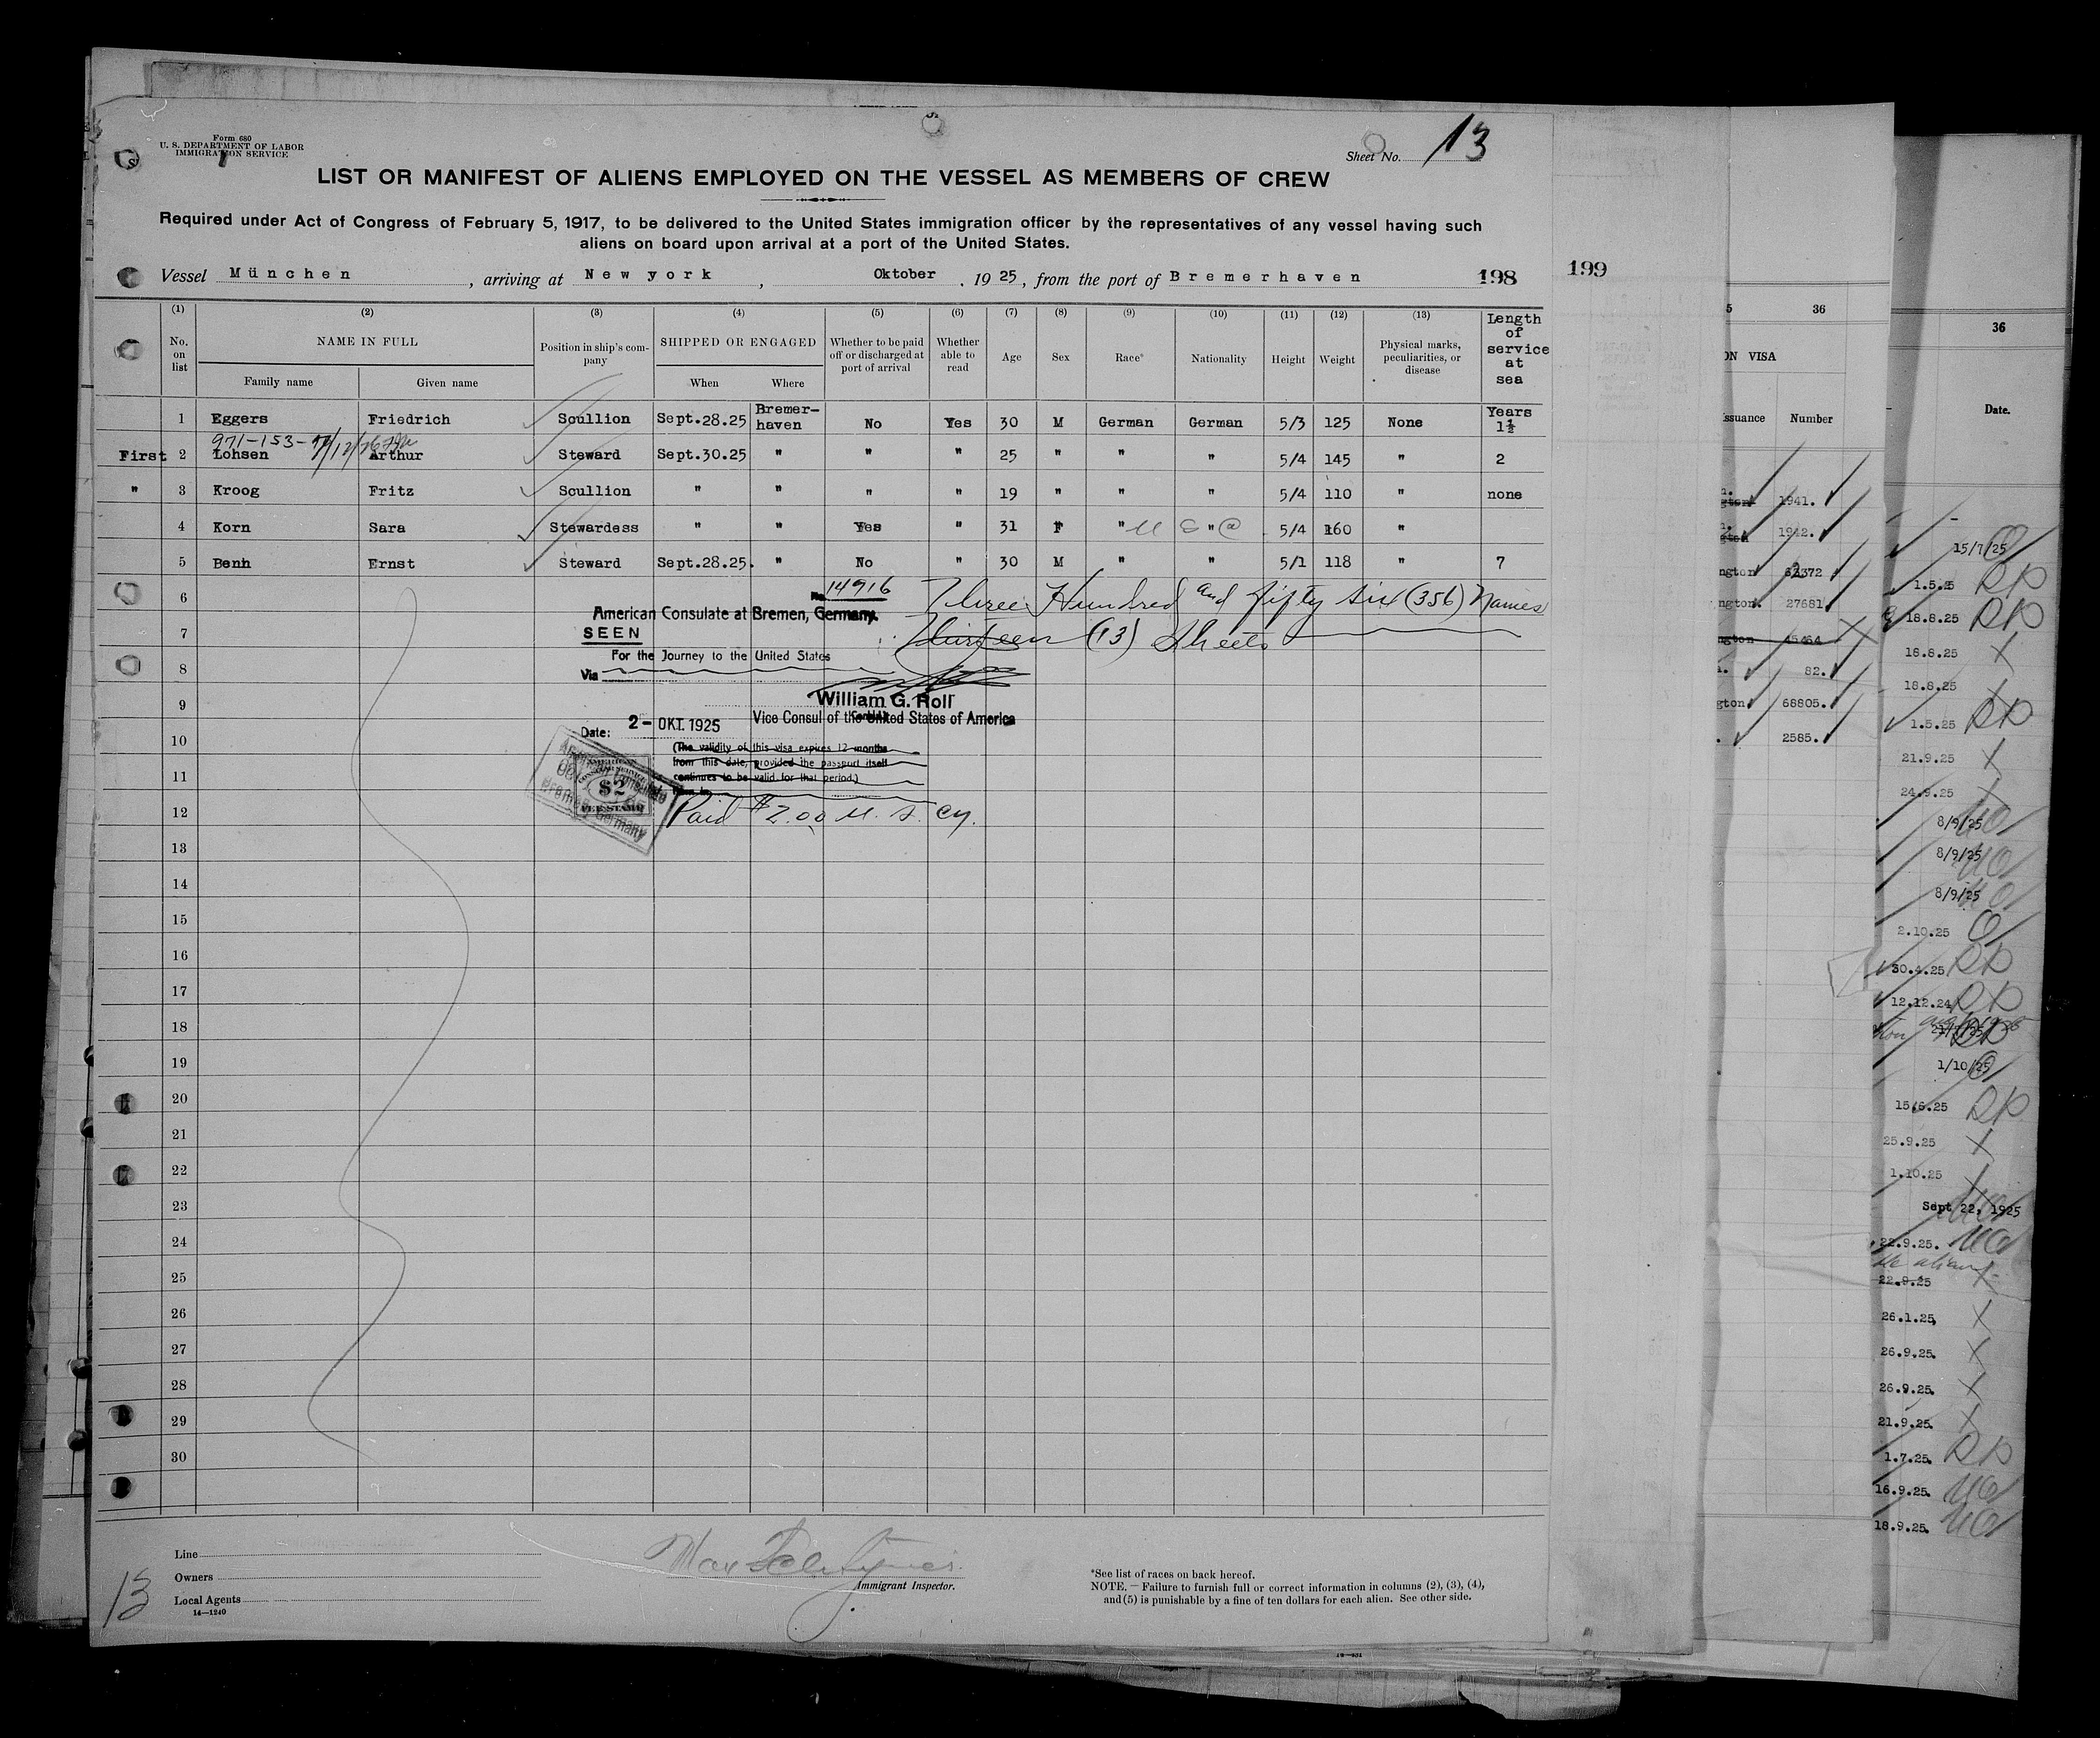 Form 680
U. S. DEPARTMENT OF LABOR
IMMIGRATION SERVICE
Sheet No. 13
LIST OR MANIFEST OF ALIENS EMPLOYED ON THE VESSEL AS MEMBERS OF CREW
Required under Act of Congress of February 5, 1917, to be delivered to the United States immigration officer by the representatives of any vessel having such
aliens on board upon arrival at a port of the United States.
Vessel München, arriving at New york, Oktober, 1925, from the port of Bremerhaven 198
199
(1) (2) (3) (4) (5) (6) (7) (8) (9) (10) (11) (12) (13)
No. on list NAME IN FULL Family name Given name Position in ship's company SHIPPED OR ENGAGED When Where Whether to be paid off or discharged at port of arrival Whether able to read Age Sex Race* Nationality Height Weight Physical marks, peculiarities, or disease Length of service at sea
1 Eggers Friedrich Scullion Sept.28.25 Bremer-haven No Yes 30 M German German 5/3 125 None Years 1½
971-153-
First 2 Lohsen Arthur Steward Sept.30.25 " " " 25 " " " 5/4 145 " 2
" 3 Kroog Fritz Scullion " " " " 19 " " " 5/4 110 " none
4 Korn Sara Stewardess " " Yes " 31 F " " 5/4 160 "
5 Benh Ernst Steward Sept.28.25. " No " 30 M " " 5/1 118 " 7
6
7
8
9
10
11
12
13
14
15
16
17
18
19
20
21
22
23
24
25
26
27
28
29
30
No. 14916
American Consulate at Bremen, Germany.
SEEN
For the Journey to the United States
Via
Three Hundred and fifty six (356) Names
Thirteen (13) Sheets
William G. Roll
Vice Consul of the United States of America
Date: 2- OKT. 1925
(The validity of this visa expires 12 months
from this date, provided the passport itself
continues to be valid for that period.)
AMERICAN
CONSULAR SERVICE
$2
FEE STAMP
American Consulate
Bremen, Germany
Paid $2.00 U. S. Cy.
Line
Owners
Local Agents
14—1240
13
Immigrant Inspector.
*See list of races on back hereof.
NOTE.—Failure to furnish full or correct information in columns (2), (3), (4),
and (5) is punishable by a fine of ten dollars for each alien. See other side.
5 36
ON VISA
ssuance Number
1941.
1942.
ngton 62372
ngton. 27681
ngton 45464
82.
gton. 66805.
2585.
36
Date.
15/7/25
1.5.25 RP
18.8.25 RP
18.8.25 X
18.8.25
1.5.25 RP
21.9.25 X
24.9.25
8/9/25
8/9/25
8/9/25
2.10.25
30.4.25 RP
12.12.24 RP
1/10/25
15.6.25 RP
25.9.25 X
1.10.25
Sept 22, 1925
22.9.25.
22.9.25
26.1.25, X
26.9.25. X
26.9.25. X
21.9.25. X
1.7.25. RP
16.9.25.
18.9.25.